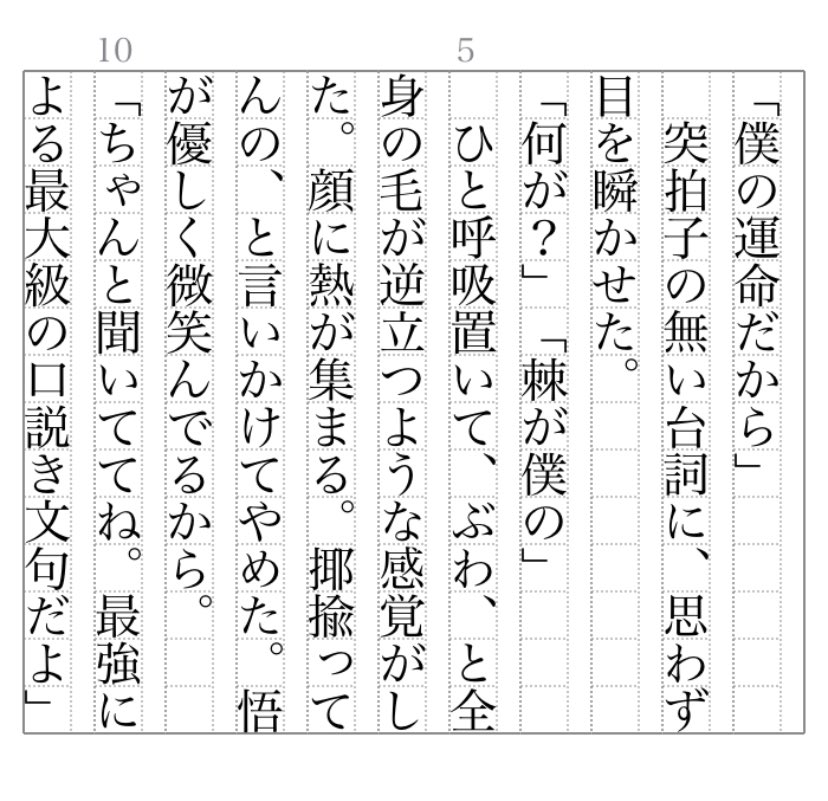 「僕の運命だから」
　突拍子の無い台詞に、思わず
目を瞬かせた。
「何が？」「棘が僕の」
　ひと呼吸置いて、ぶわ、と全
身の毛が逆立つような感覚がし
た。顔に熱が集まる。揶揄って
んの、と言いかけてやめた。悟
が優しく微笑んでるから。
「ちゃんと聞いててね。最強に
よる最大級の口説き文句だよ」
5
10